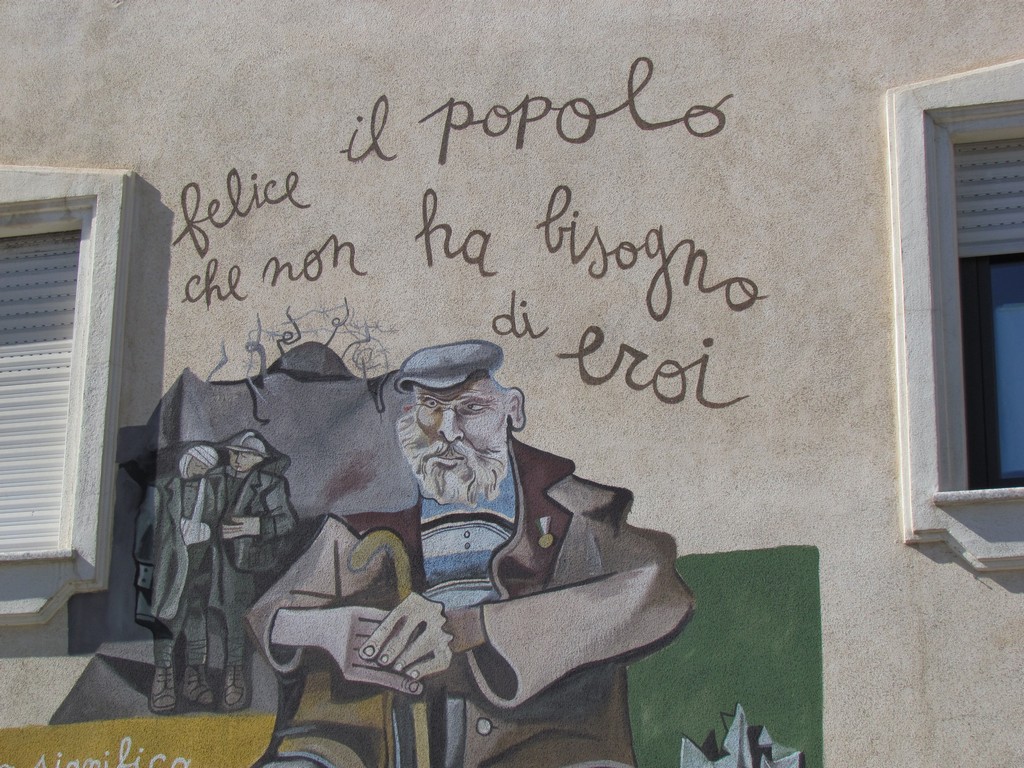 felice il popolo
che non ha bisogno
di eroi
significa